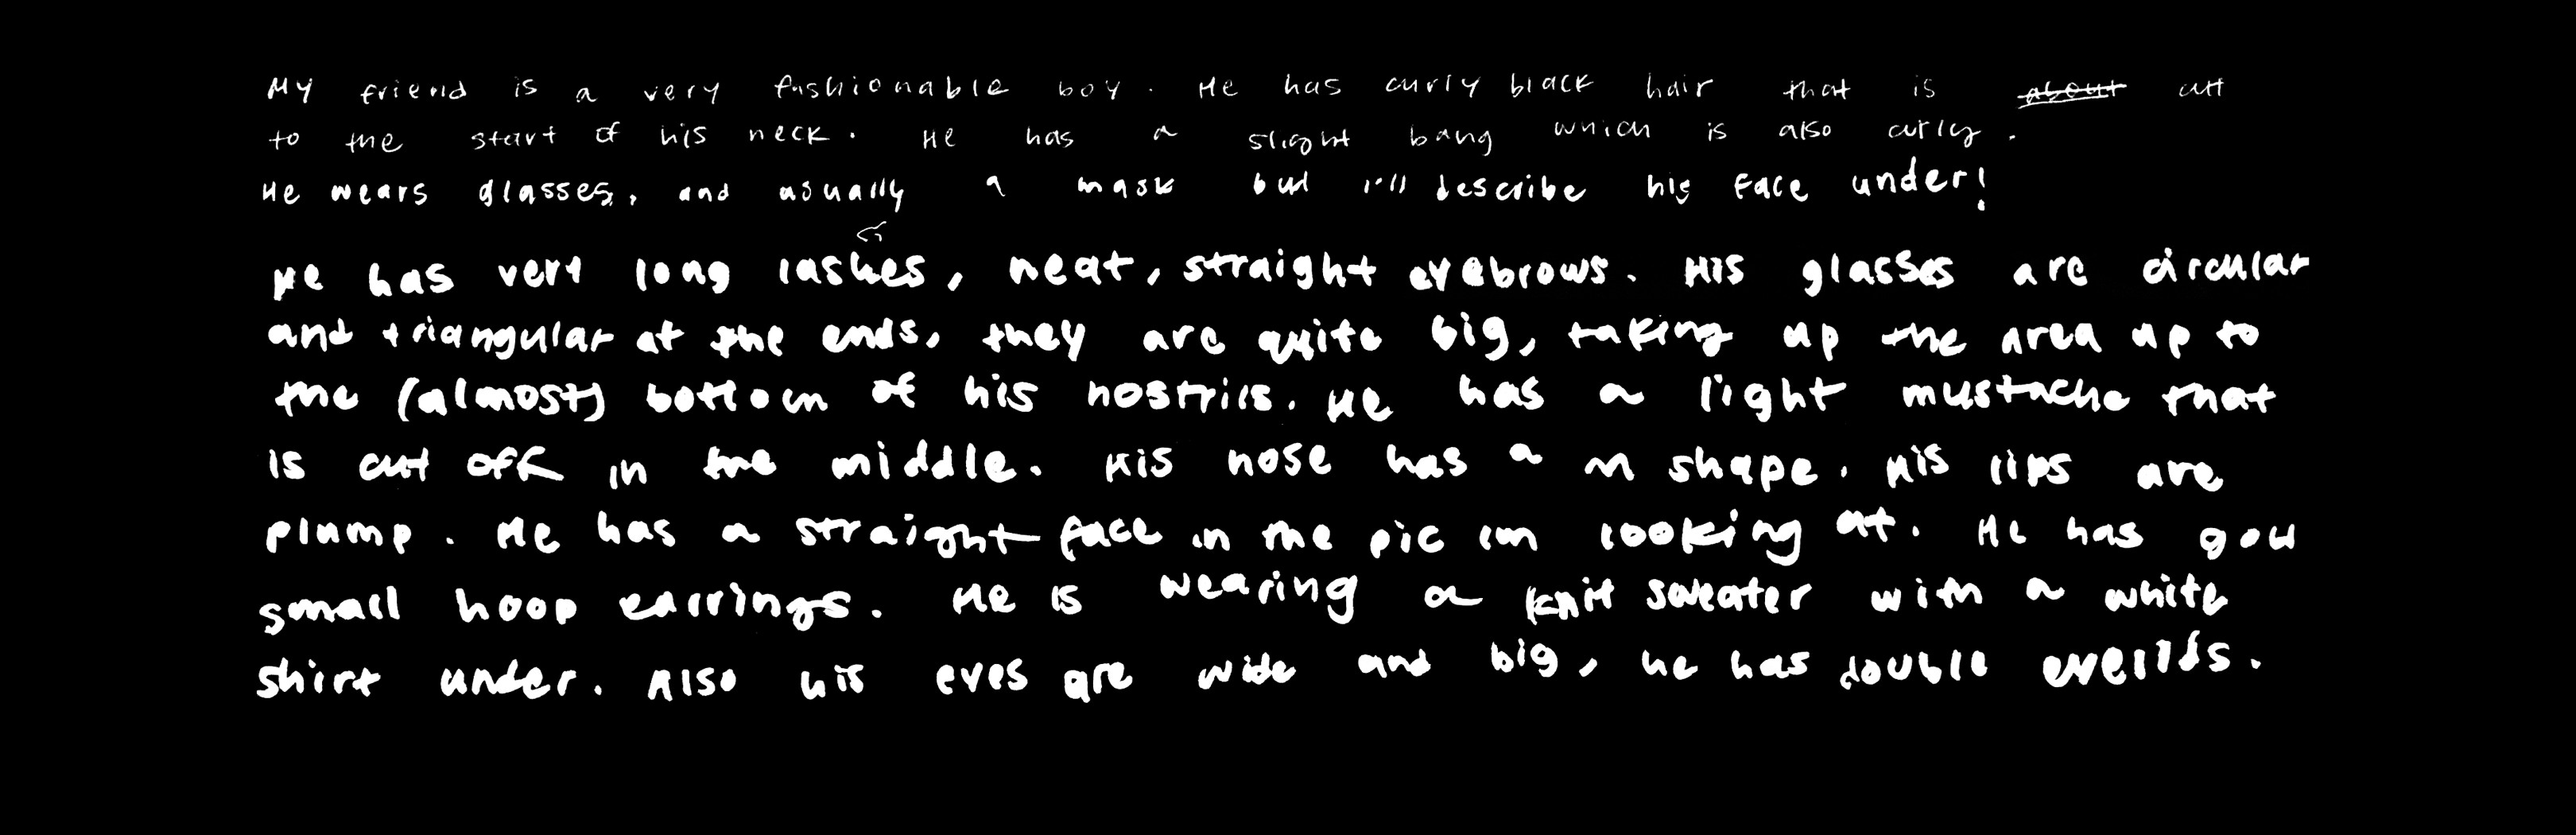 My friend is a very fashionable boy. He has curly black hair that is about cut
to the start of his neck. He has a slight bang which is also curly.
He wears glasses, and usually a mask but i'll describe his face under!
He has very long lashes, neat, straight eyebrows. His glasses are circular
and triangular at the ends, they are quite big, taking up the area up to
the (almost) bottom of his nostrils. He has a light mustache that
is cut off in the middle. His nose has a m shape. His lips are
plump. He has a straight face in the pic im looking at. He has gold
small hoop earrings. He is wearing a knit sweater with a white
shirt under. Also his eyes are wide and big, he has double eyelids.